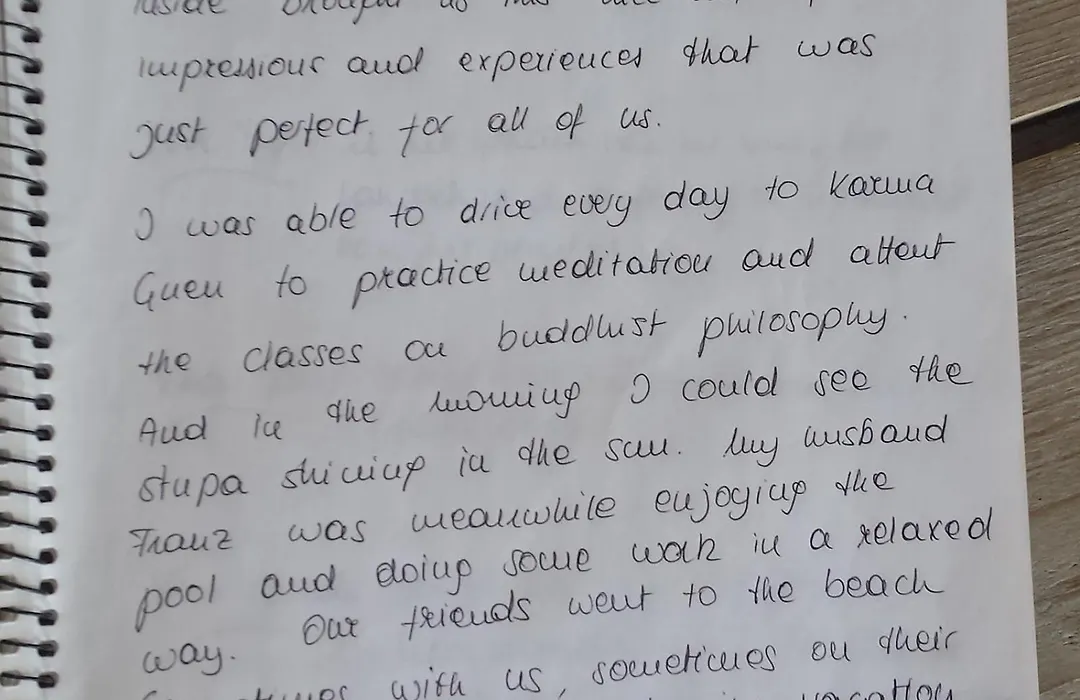 inside brought us
impressions and experiences that was
just perfect for all of us.
I was able to drive every day to Karma
Guen to practice meditation and attent
the classes on buddhist philosophy.
And in the morning I could see the
stupa shining in the sun. My husband
Franz was meanwhile enjoying the
pool and doing some work in a relaxed
way. Our friends went to the beach
with us, sometimes on their
vacation